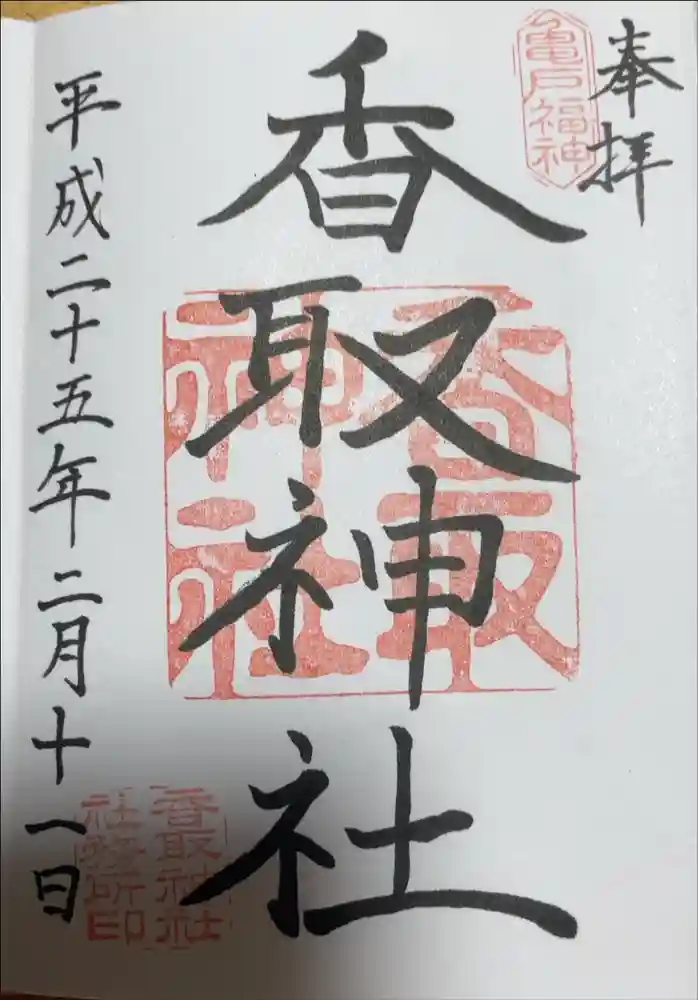 奉拝
亀戸福神
香取神社
香取
神社
平成二十五年二月十一日
香取神社
社務所印